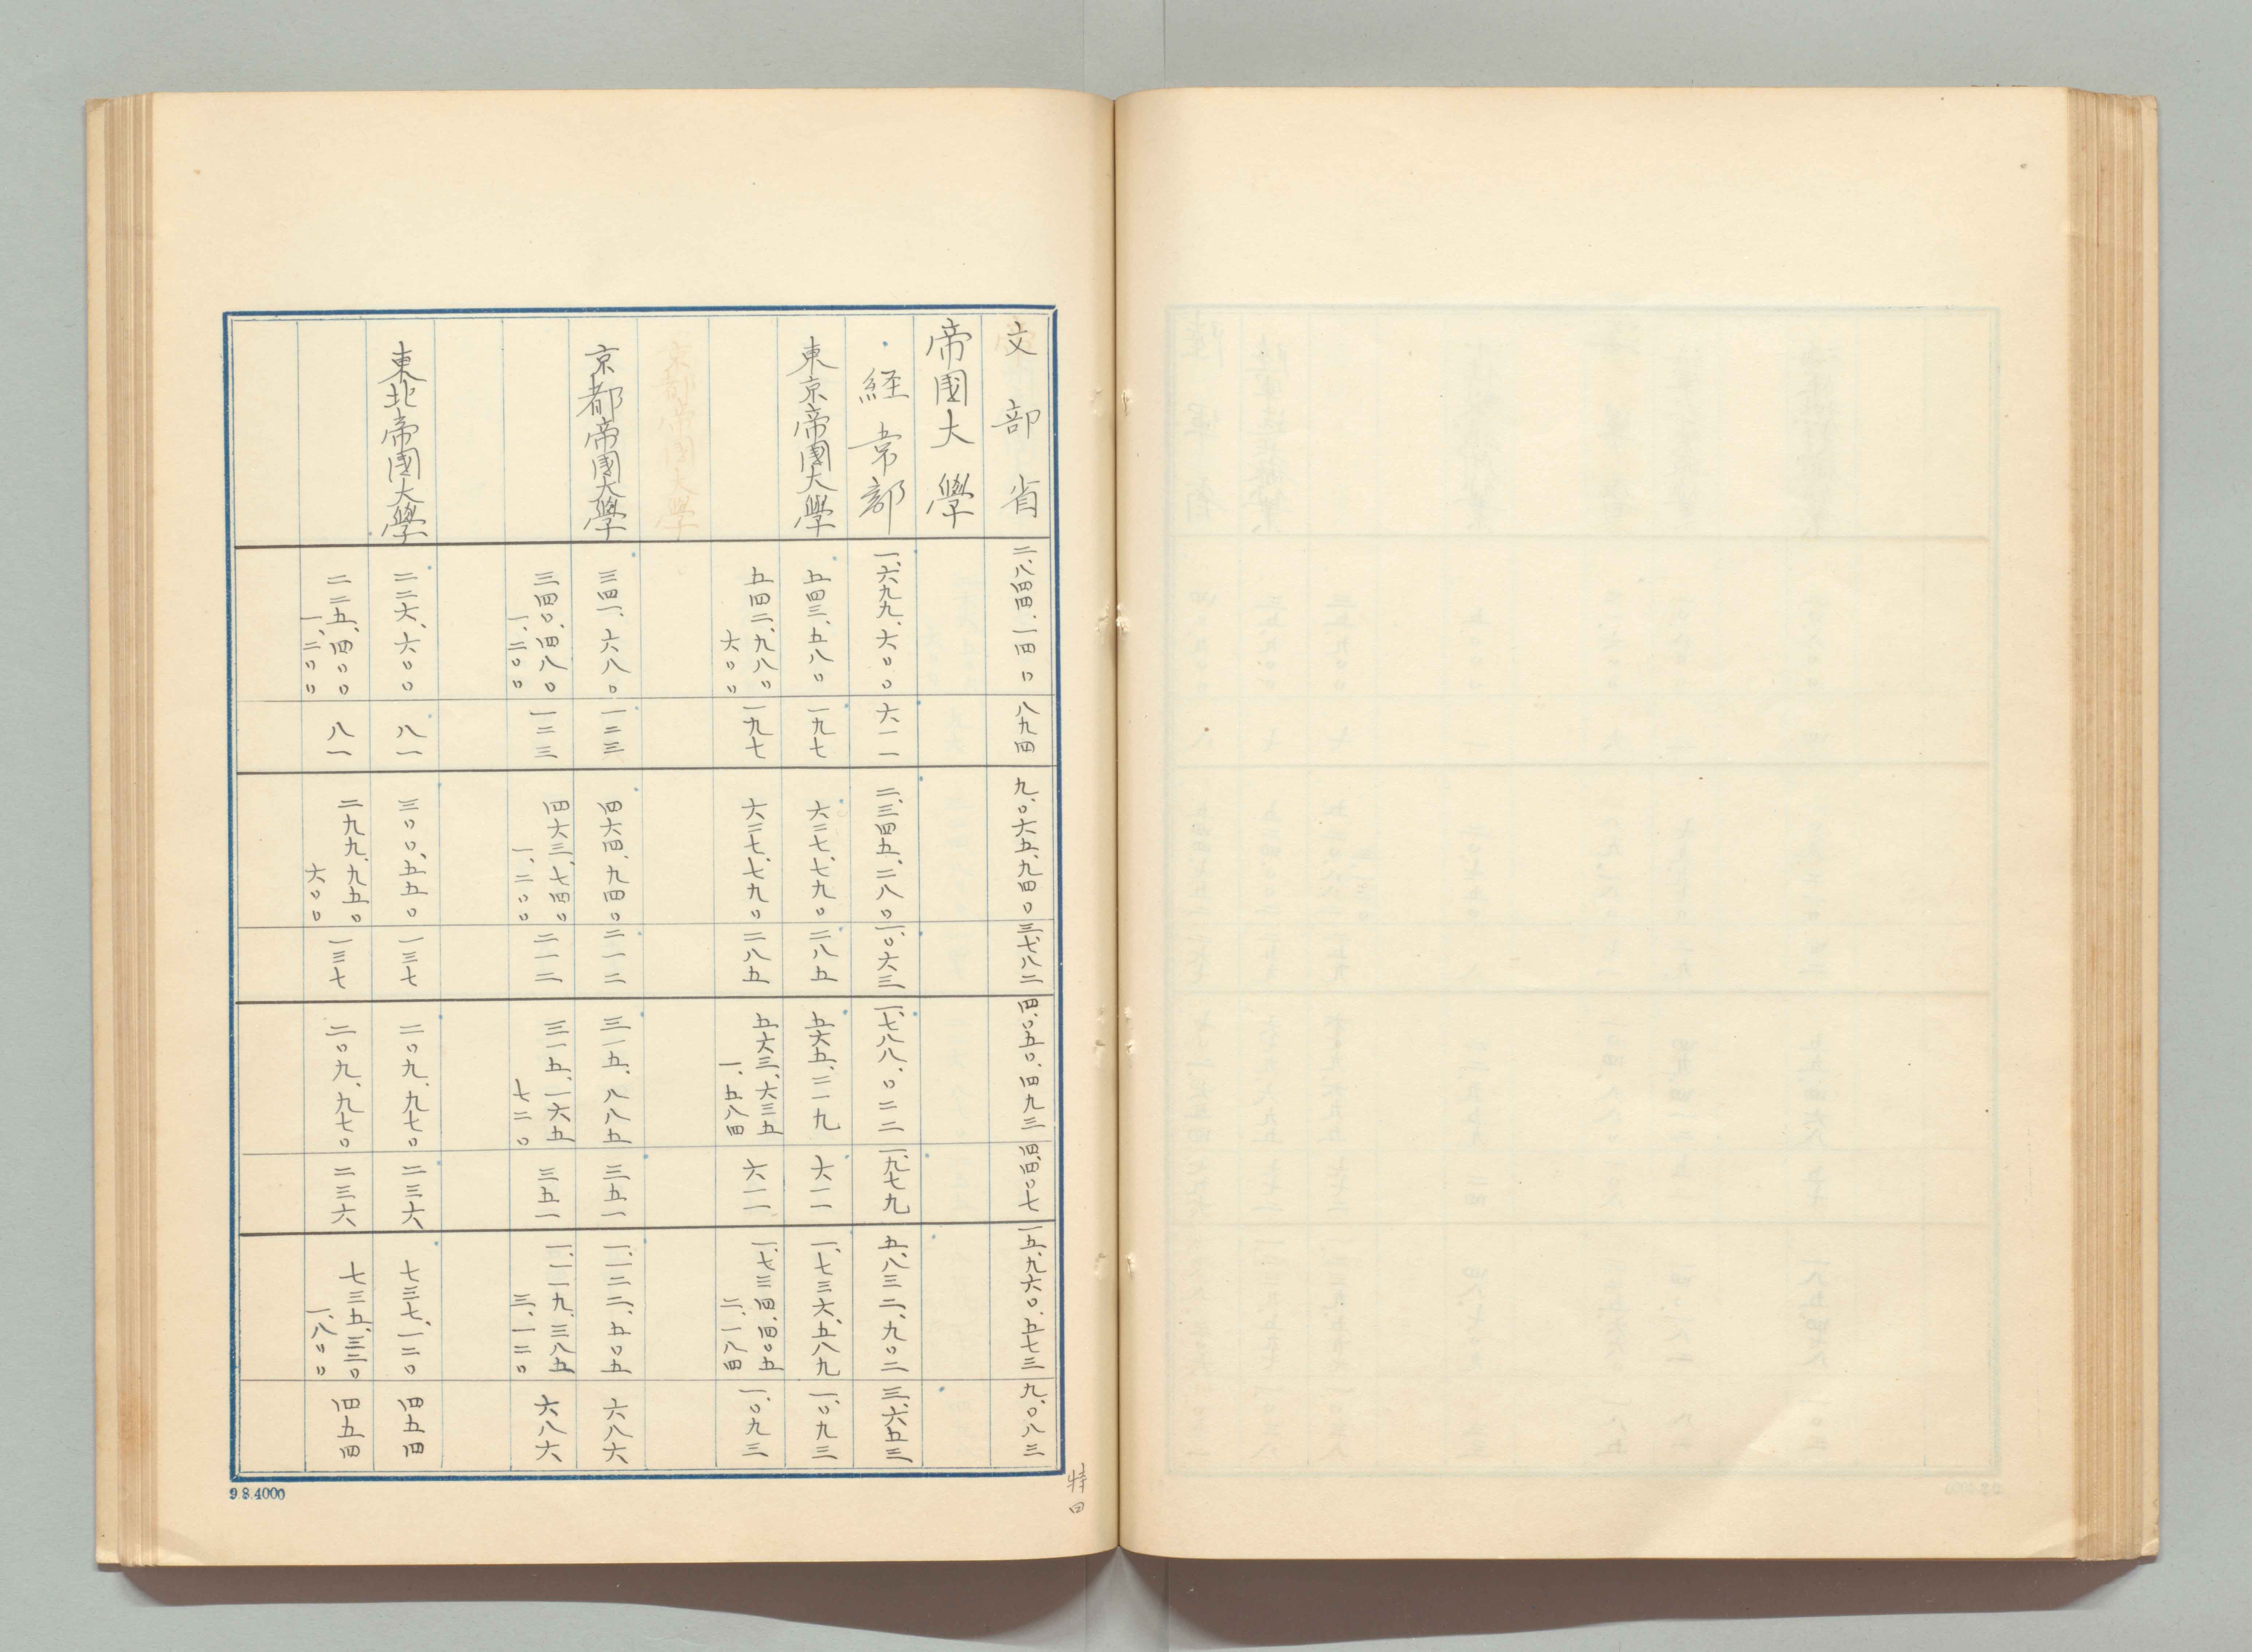 文部省 二、八四四、一四〇 八九四 九、〇六五、九四〇 三、七八二 四、〇五〇、四九三 四、四〇七 一五、九六〇、五七三 九、〇八三
帝國大學
経常部 一、六九九、六〇〇 六一一 二、三四五、二八〇 一、〇六三 一、七八八、〇二二 一、九七九 五、八三二、九〇二 三、六五三
東京帝國大學 五四三、五八〇 一九七 六二七、七九〇 二八五 五六五、二一九 六一一 一、七三六、五八九 一、〇九三
五四二、九八〇 一九七 六二七、七九〇 二八五 五六三、六三五 六一一 一、七三四、四〇五 一、〇九三
六〇〇 一、五八四 二、一八四
京都帝國大學 三四一、六八〇 一二三 四六四、九四〇 二一二 三一五、八八五 三五一 一、一二二、五〇五 六八六
三四〇、四八〇 一二三 四六三、七四〇 二一二 三一五、一六五 三五一 一、一一九、三八五 六八六
一、二〇〇 一、二〇〇 七二〇 三、一二〇
東北帝國大學 二二六、六〇〇 八一 三〇〇、五五〇 一三七 二〇九、九七〇 二三六 七三七、一二〇 四五四
二二五、四〇〇 八一 二九九、九五〇 一三七 二〇九、九七〇 二三六 七三五、三二〇 四五四
一、二〇〇 六〇〇 一、八〇〇
9.8.4000